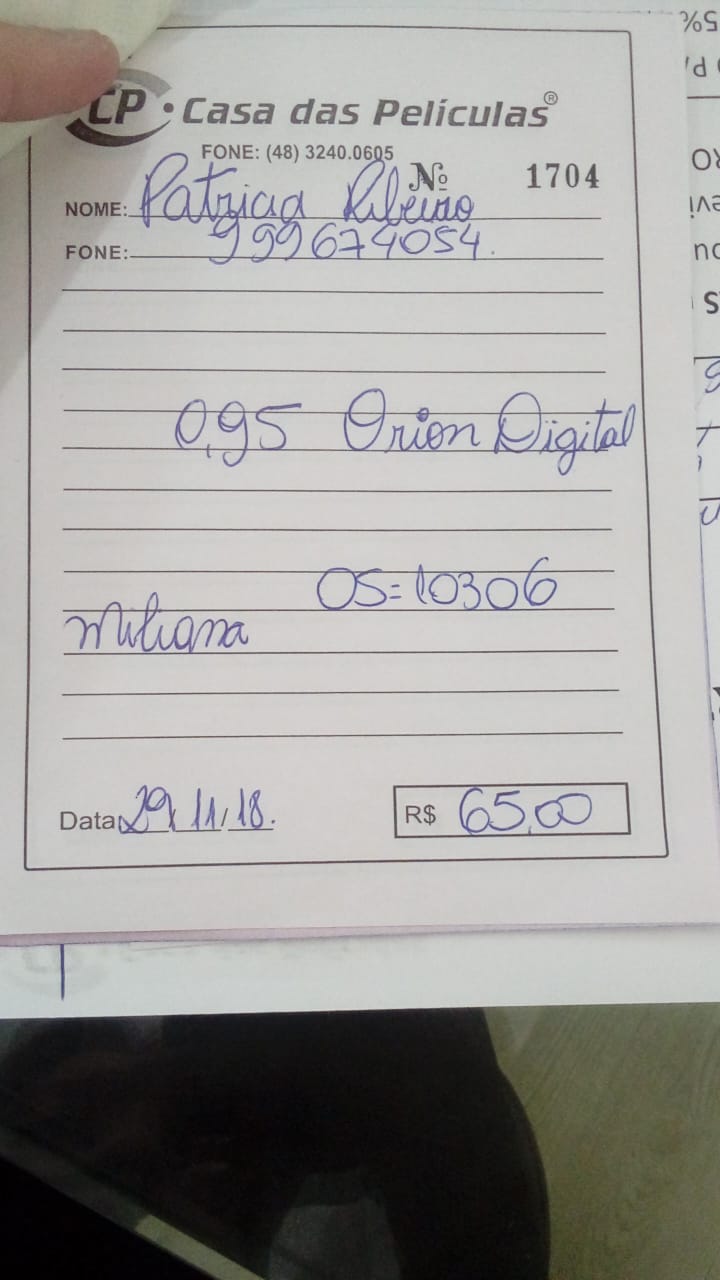 CP • Casa das Películas®
FONE: (48) 3240.0605
Nº 1704
NOME: Patricia Ribeiro
FONE: 999674054.
0,95 Orion Digital
OS=10306
Data 29/11/18.
R$ 65,00
5%